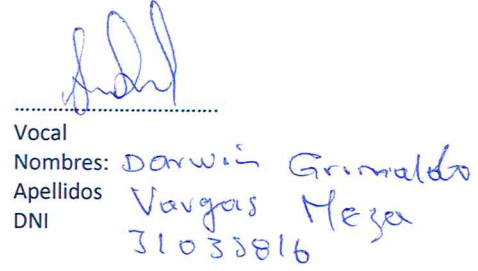 Vocal
Nombres: Darwin Grimaldo
Apellidos Vargas Meza
DNI 31033816